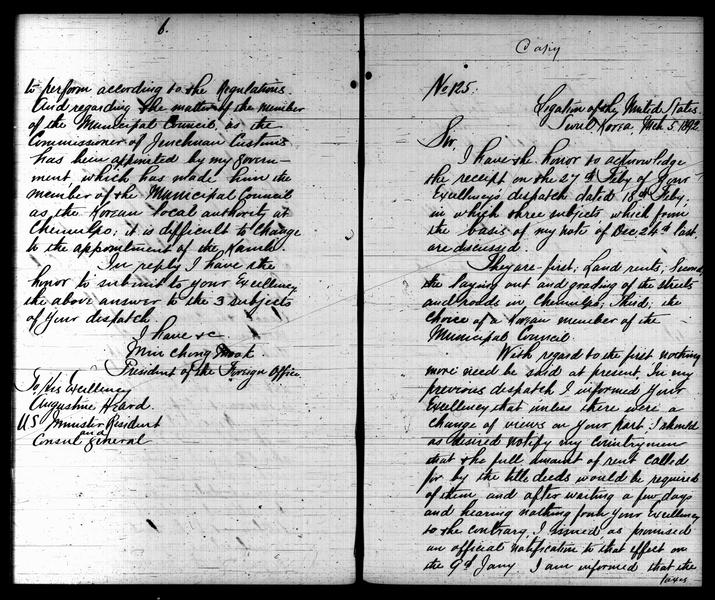 6.
to perform according to the Regulations.
And regarding the matter of the member
of the Municipal Council, as the
Commissioner of Jenchuan Customs
has been appointed by my govern-
ment which has made him the
member of the Municipal Council
as the Korean local authority at
Chemulpo; it is difficult to change
to the appointment of the Kamli.
In reply I have the
honor to submit to your Excellency
the above answer to the 3 subjects
of your despatch.
I have &c
Min Chong Mook
President of the Foreign Office.
To His Excellency
Augustine Heard.
US Minister Resident
and
Consul General
Copy
No 125.
Legation of the United States
Seoul Korea, Mch 5. 1892.
Sir,
I have the honor to acknowledge
the receipt on the 27th Feby of Your
Excellency's despatch dated 18th Feby,
in which three subjects, which from
the basis of my note of Dec 24th last
are discussed.
They are- first, Land rents; Second,
the laying out and grading of the streets
and roads in Chemulpo; Third; the
choice of a Korean member of the
Municipal Council.
With regard to the first nothing
more need be said at present. In my
previous despatch I informed Your
Excellency that unless there were a
change of views on your part I should
as desired notify my countrymen
that the full amount of rent called
for by the title deeds would be required
of them and after waiting a few days
and hearing nothing from your Excellency
to the contrary, I issued as promised
an official notification to that effect on
the 9th Jany. I am informed that the
taxes